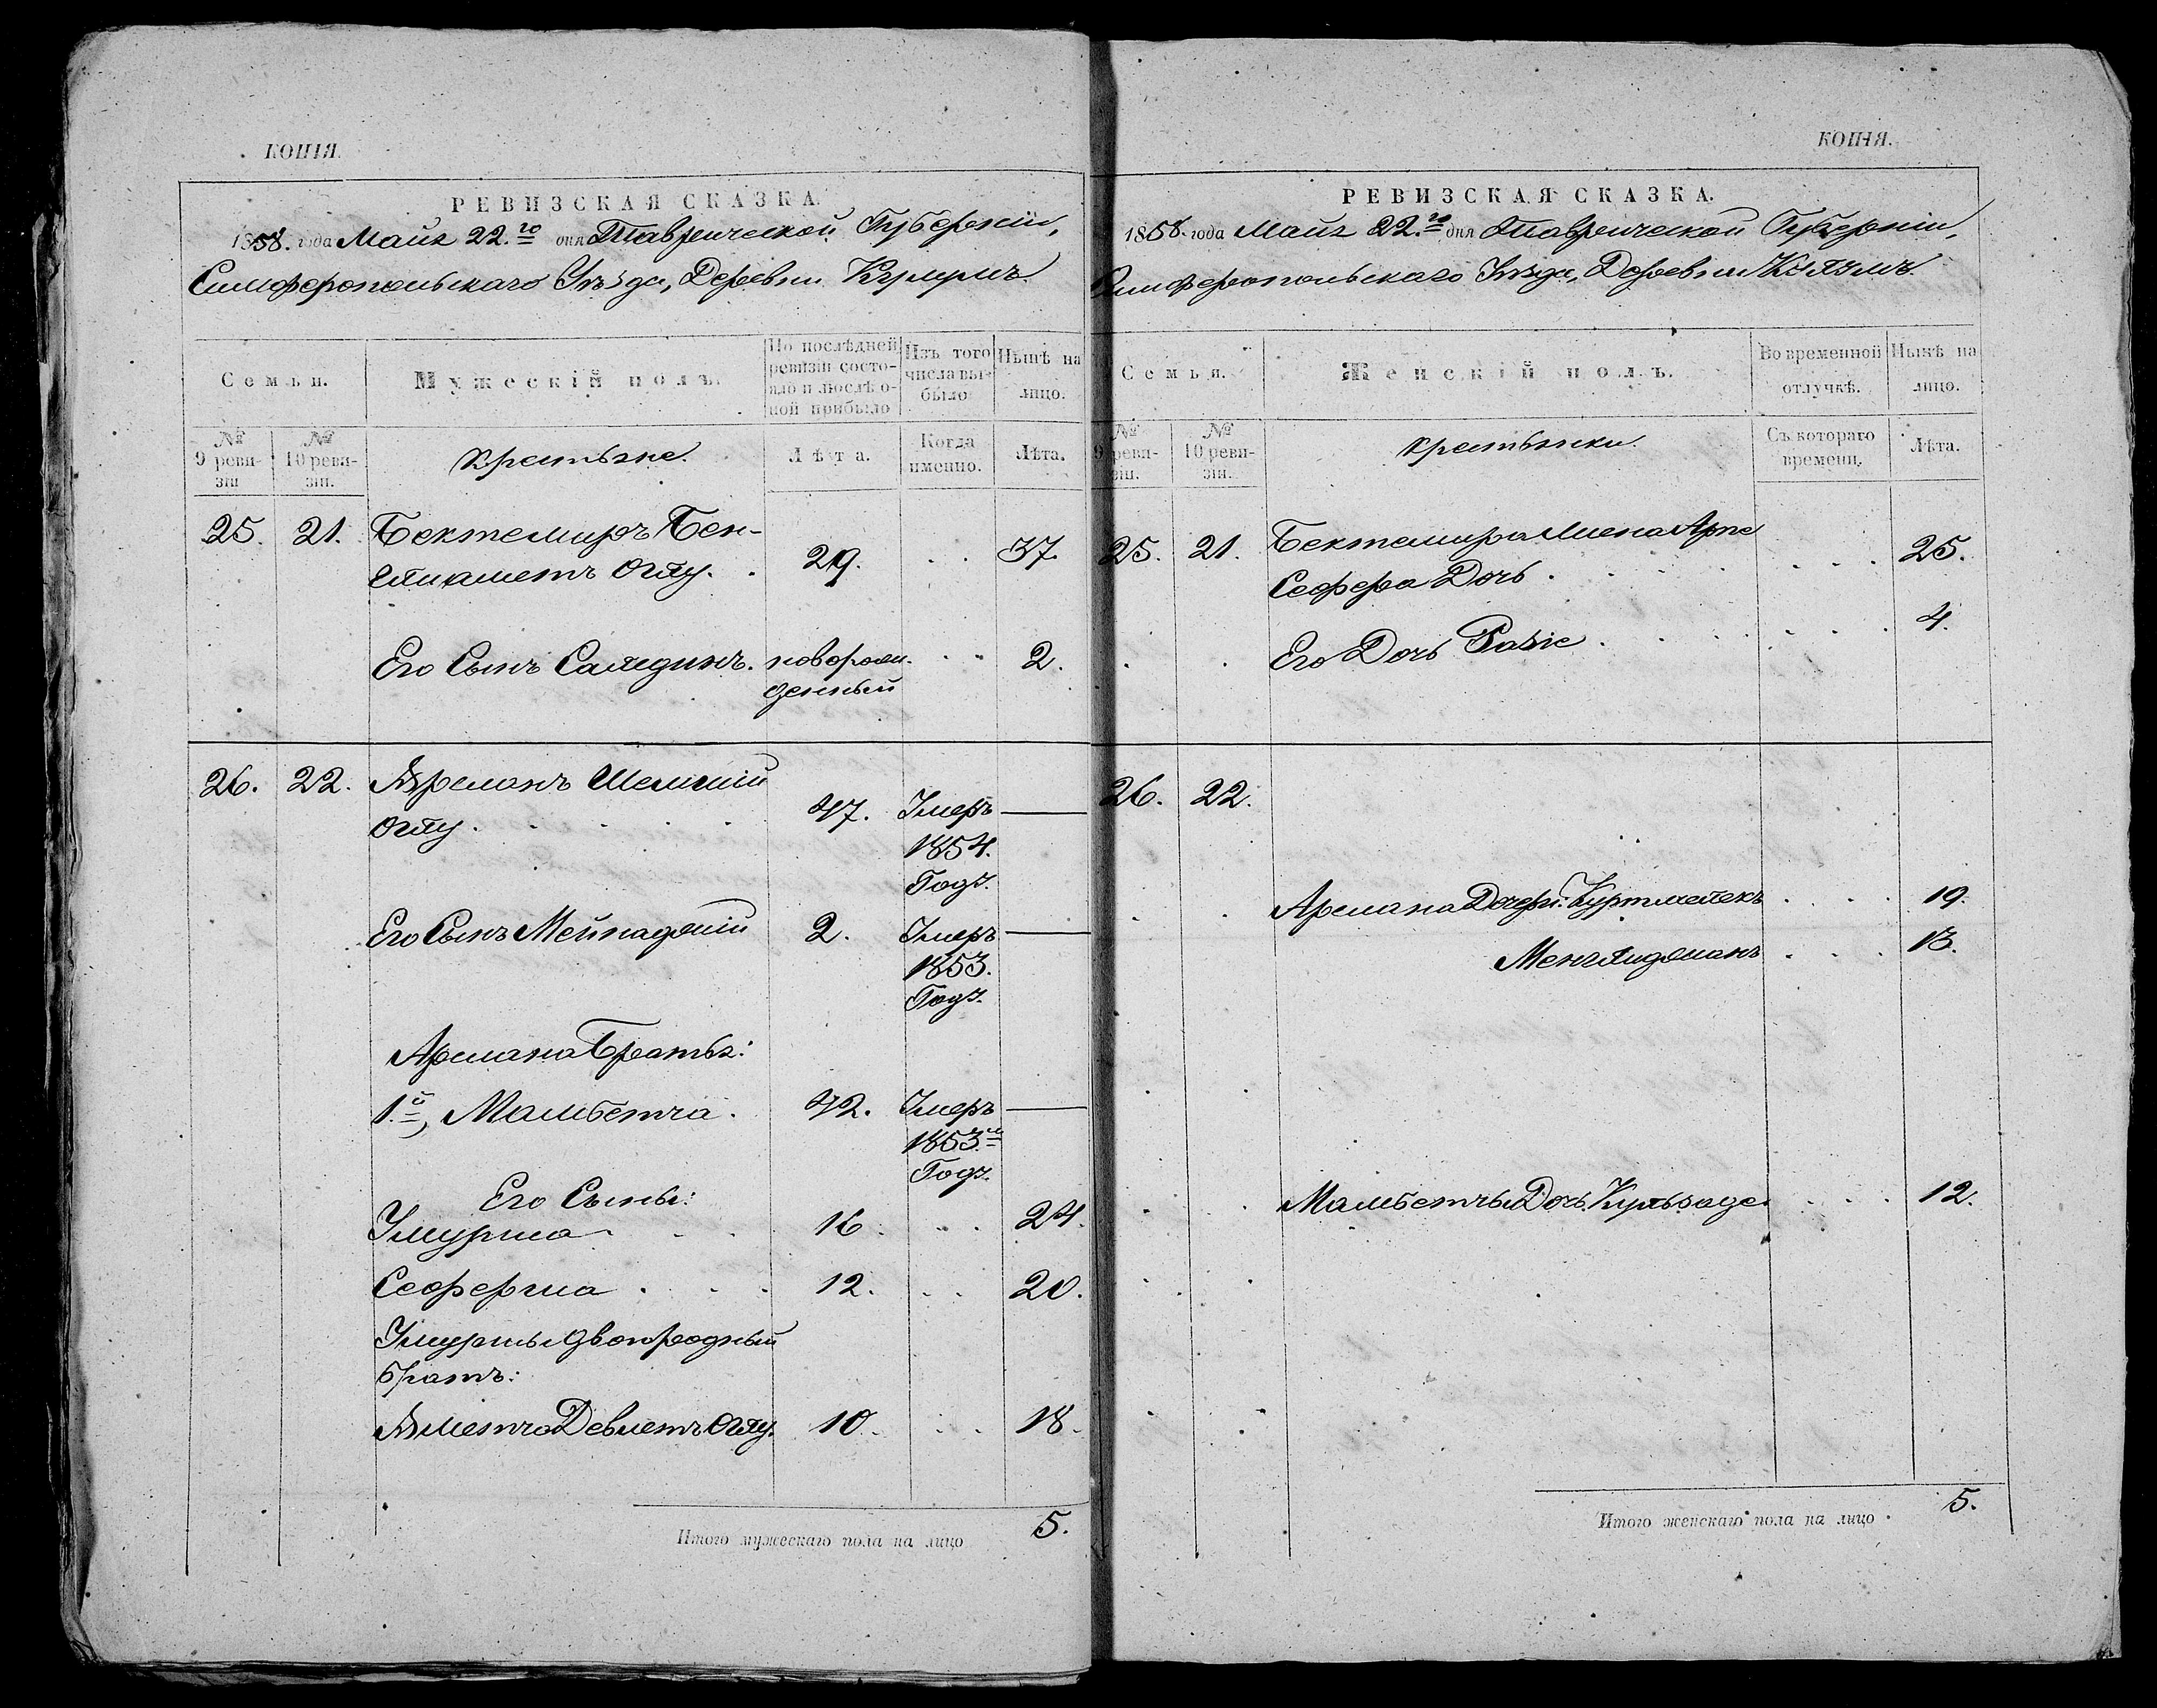 КОПІЯ.
РЕВИЗСКАЯ СКАЗКА.
1858. года Маія 22.го дня Таврической Губерніи,
Симферопольскаго Уѣзда, Деревни
Семьи.
Мужескій полъ.
По послѣдней ревизіи состояло и послѣ оной прибыло
Изъ того числа выбыло
Нынѣ на лицо.
№ 9 ревизіи
№ 10 ревизіи.
Крестьяне.
Лѣта.
Когда именно.
Лѣта.
25. 21. Бектемиръ Бен-
Огту. . 29. . . 37.
Его Сынъ Саледжнъ. новорож- . . 2.
денный
26. 22. Арсланъ
Огту . . . . . 47. Умеръ —
1854.
Годъ.
Его Сынъ 2. Умеръ —
1853.
Годъ.
Арслана Братья:
1.й, Мамбетча . 42. Умеръ —
1853.й
Годъ.
Его Сыны:
Умурша . . . 16. . . 24.
Сеферша . . . . 12. . . 20.
Умурши двоюродный
братъ:
Аметча Девлетъ Огту. 10. . . 18.
Итого мужескаго пола на лицо 5.
КОПІЯ.
РЕВИЗСКАЯ СКАЗКА.
1858. года Маія 22.го дня Таврической Губерніи,
Симферопольскаго Уѣзда, Деревни
Семьи.
Женскій полъ.
Во временной отлучкѣ.
Нынѣ на лицо.
№ 9 ревизіи.
№ 10 ревизіи.
Крестьянки.
Съ котораго времени.
Лѣта.
25. 21. Бектемира Жена Арпе
Сефера Дочь . . . . . . . 25.
Его Дочь Разіе . . . . . . . 4.
26. 22.
Арслана Дочери: . . . . 19.
. . . . 13.
Мамбетчи Дочь Кульзаде . . . . 12.
Итого женскаго пола на лицо . 5.